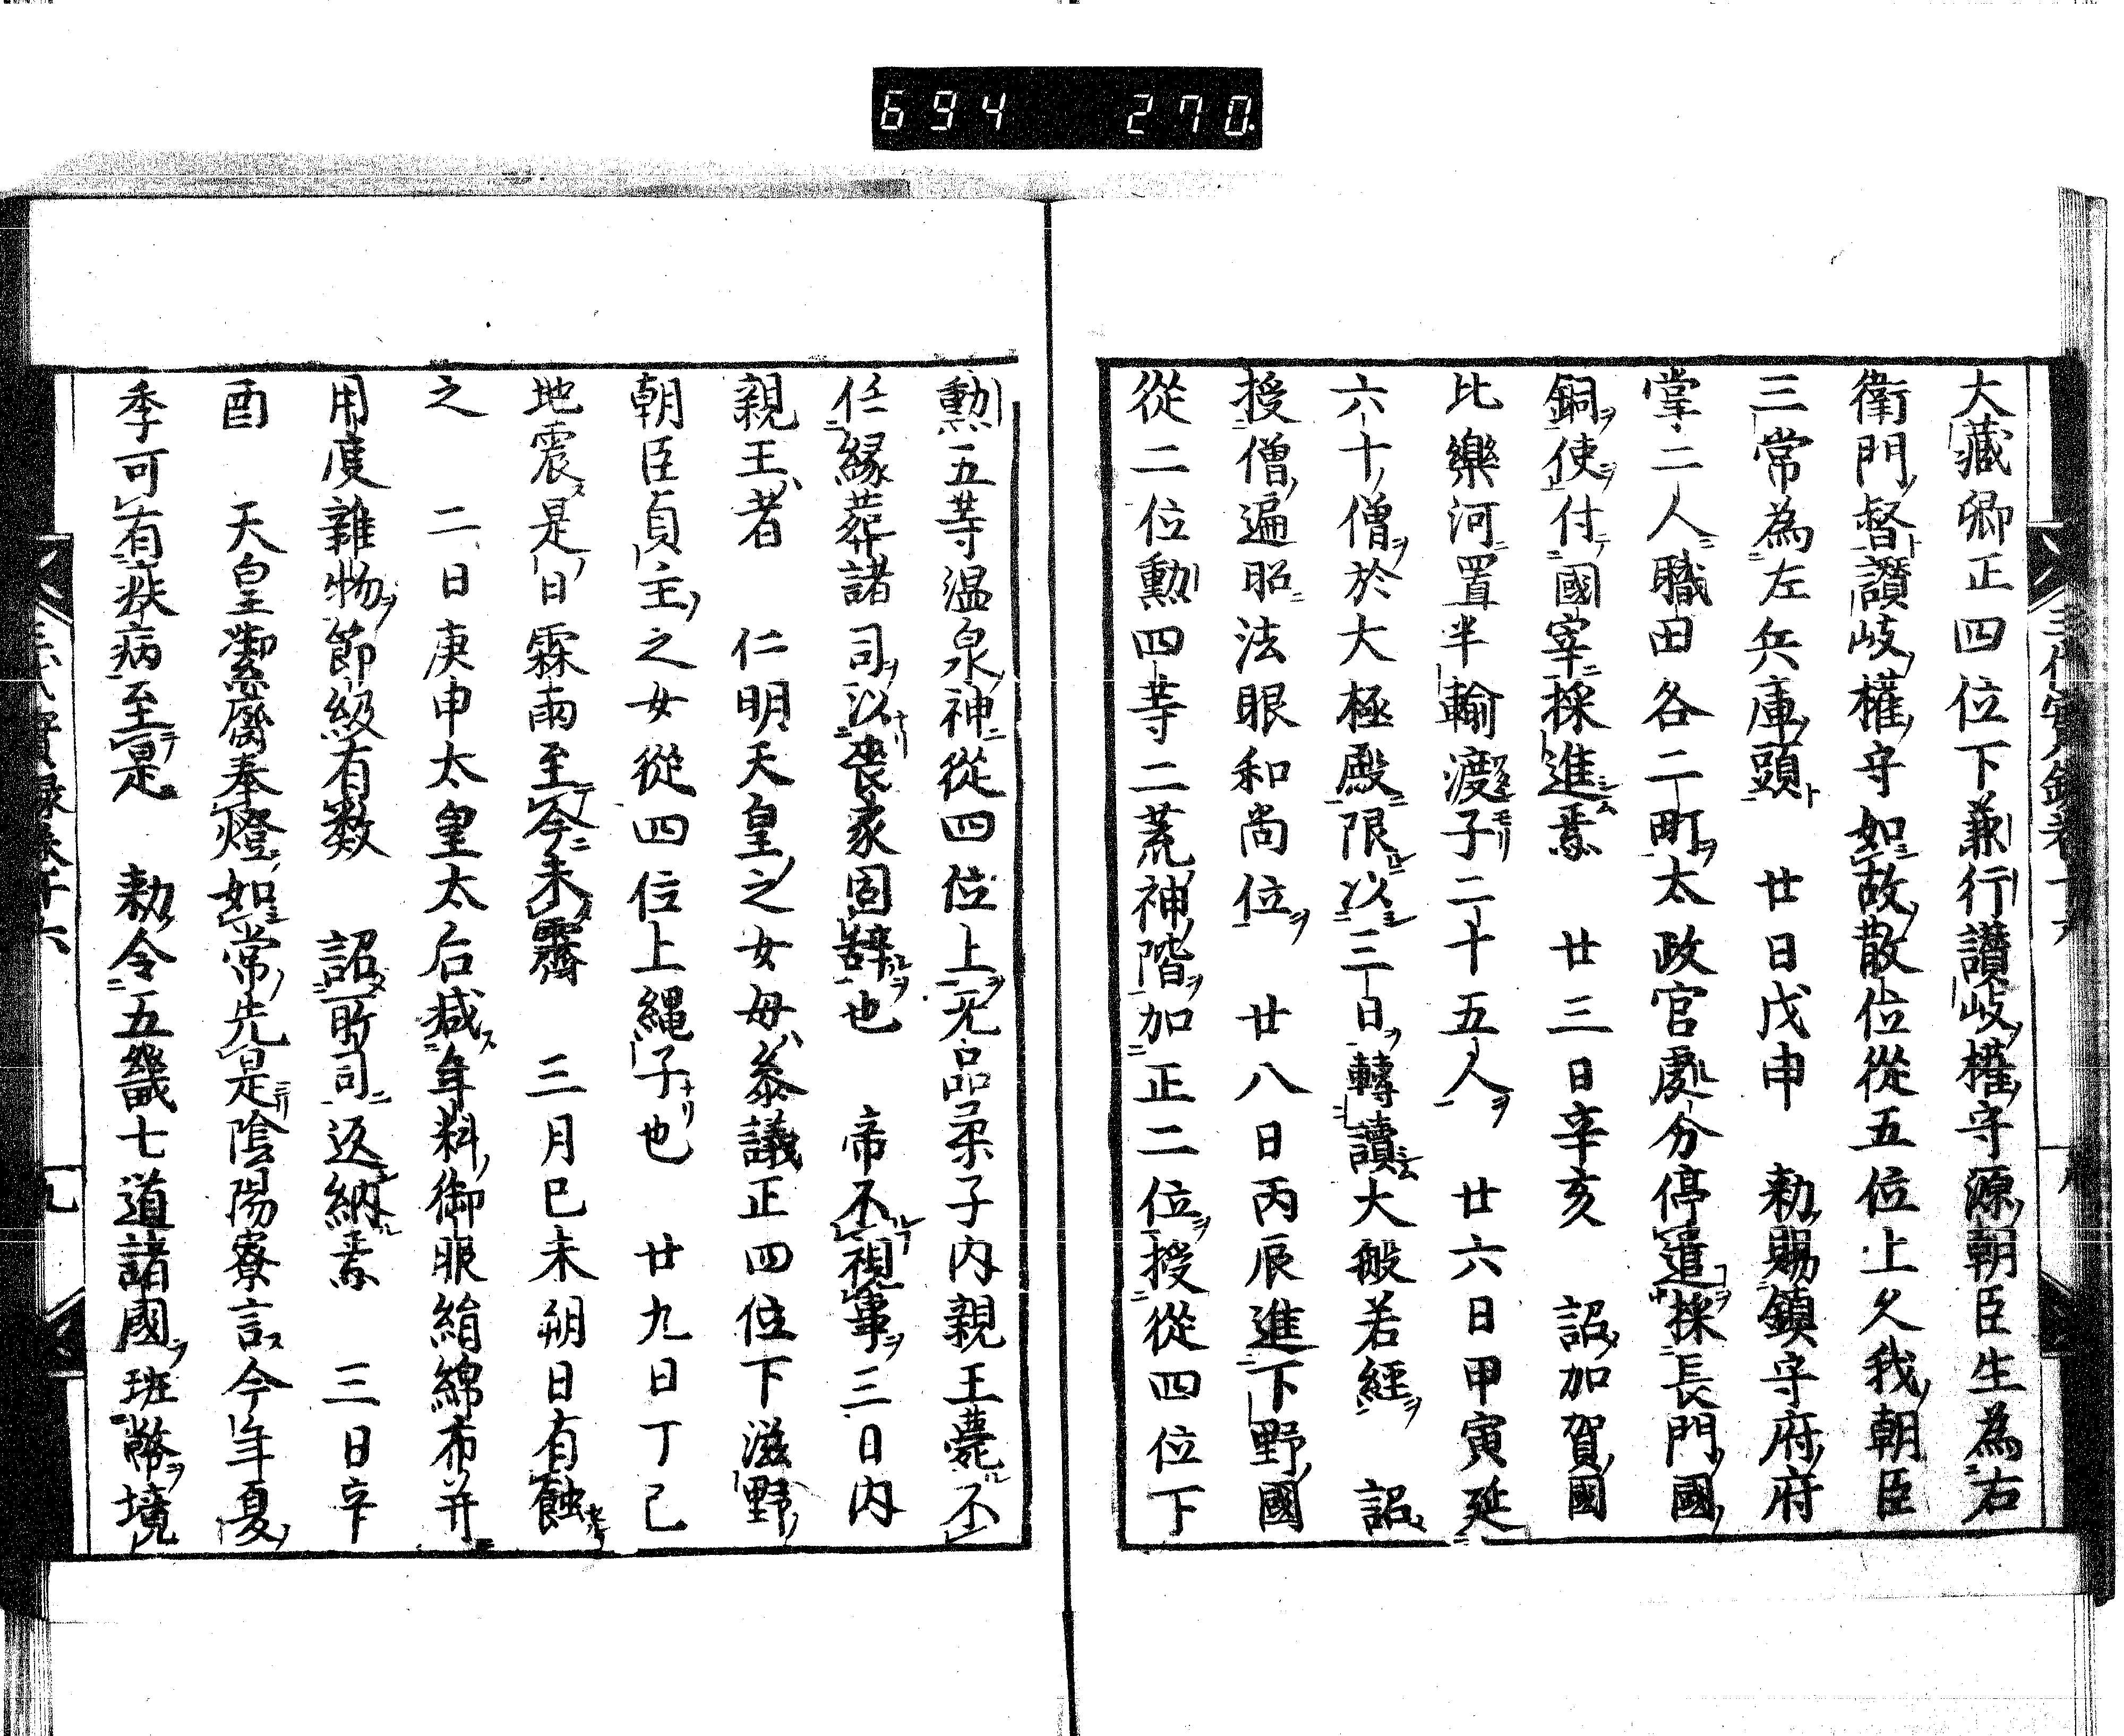 694 270.
大藏卿正四位下兼行讃岐權守源朝臣生為右
衛門督讃岐權守如故散位從五位上久我朝臣
三常為左兵庫頭 廿日戊申 勅賜鎮守府府
掌二人職田各二町太政官處分停遣採長門國
銅使付國宰採進焉 廿三日辛亥 詔加賀國
比樂河置半輸渡子二十五人 廿六日甲寅延
六十僧於大極殿限以三日轉讀大般若經 詔
授僧遍昭法眼和尚位 廿八日丙辰進下野國
從二位勳四等二荒神階加正二位授從四位下
勳五等温泉神從四位上无品柔子内親王薨不
任縁葬諸司以喪家固辭也 帝不視事三日内
親王者 仁明天皇之女母參議正四位下滋野
朝臣貞主之女從四位上縄子也 廿九日丁巳
地震是日霖雨至今未霽 三月己未朔日有蝕
之 二日庚申太皇太后減年料御服絹綿布并
用度雜物節級有数 詔所司返納焉 三日辛
酉 天皇御潔齋奉燈如常先是陰陽寮言今年夏
季可有疾病至是 勅令五畿七道諸國班幣境